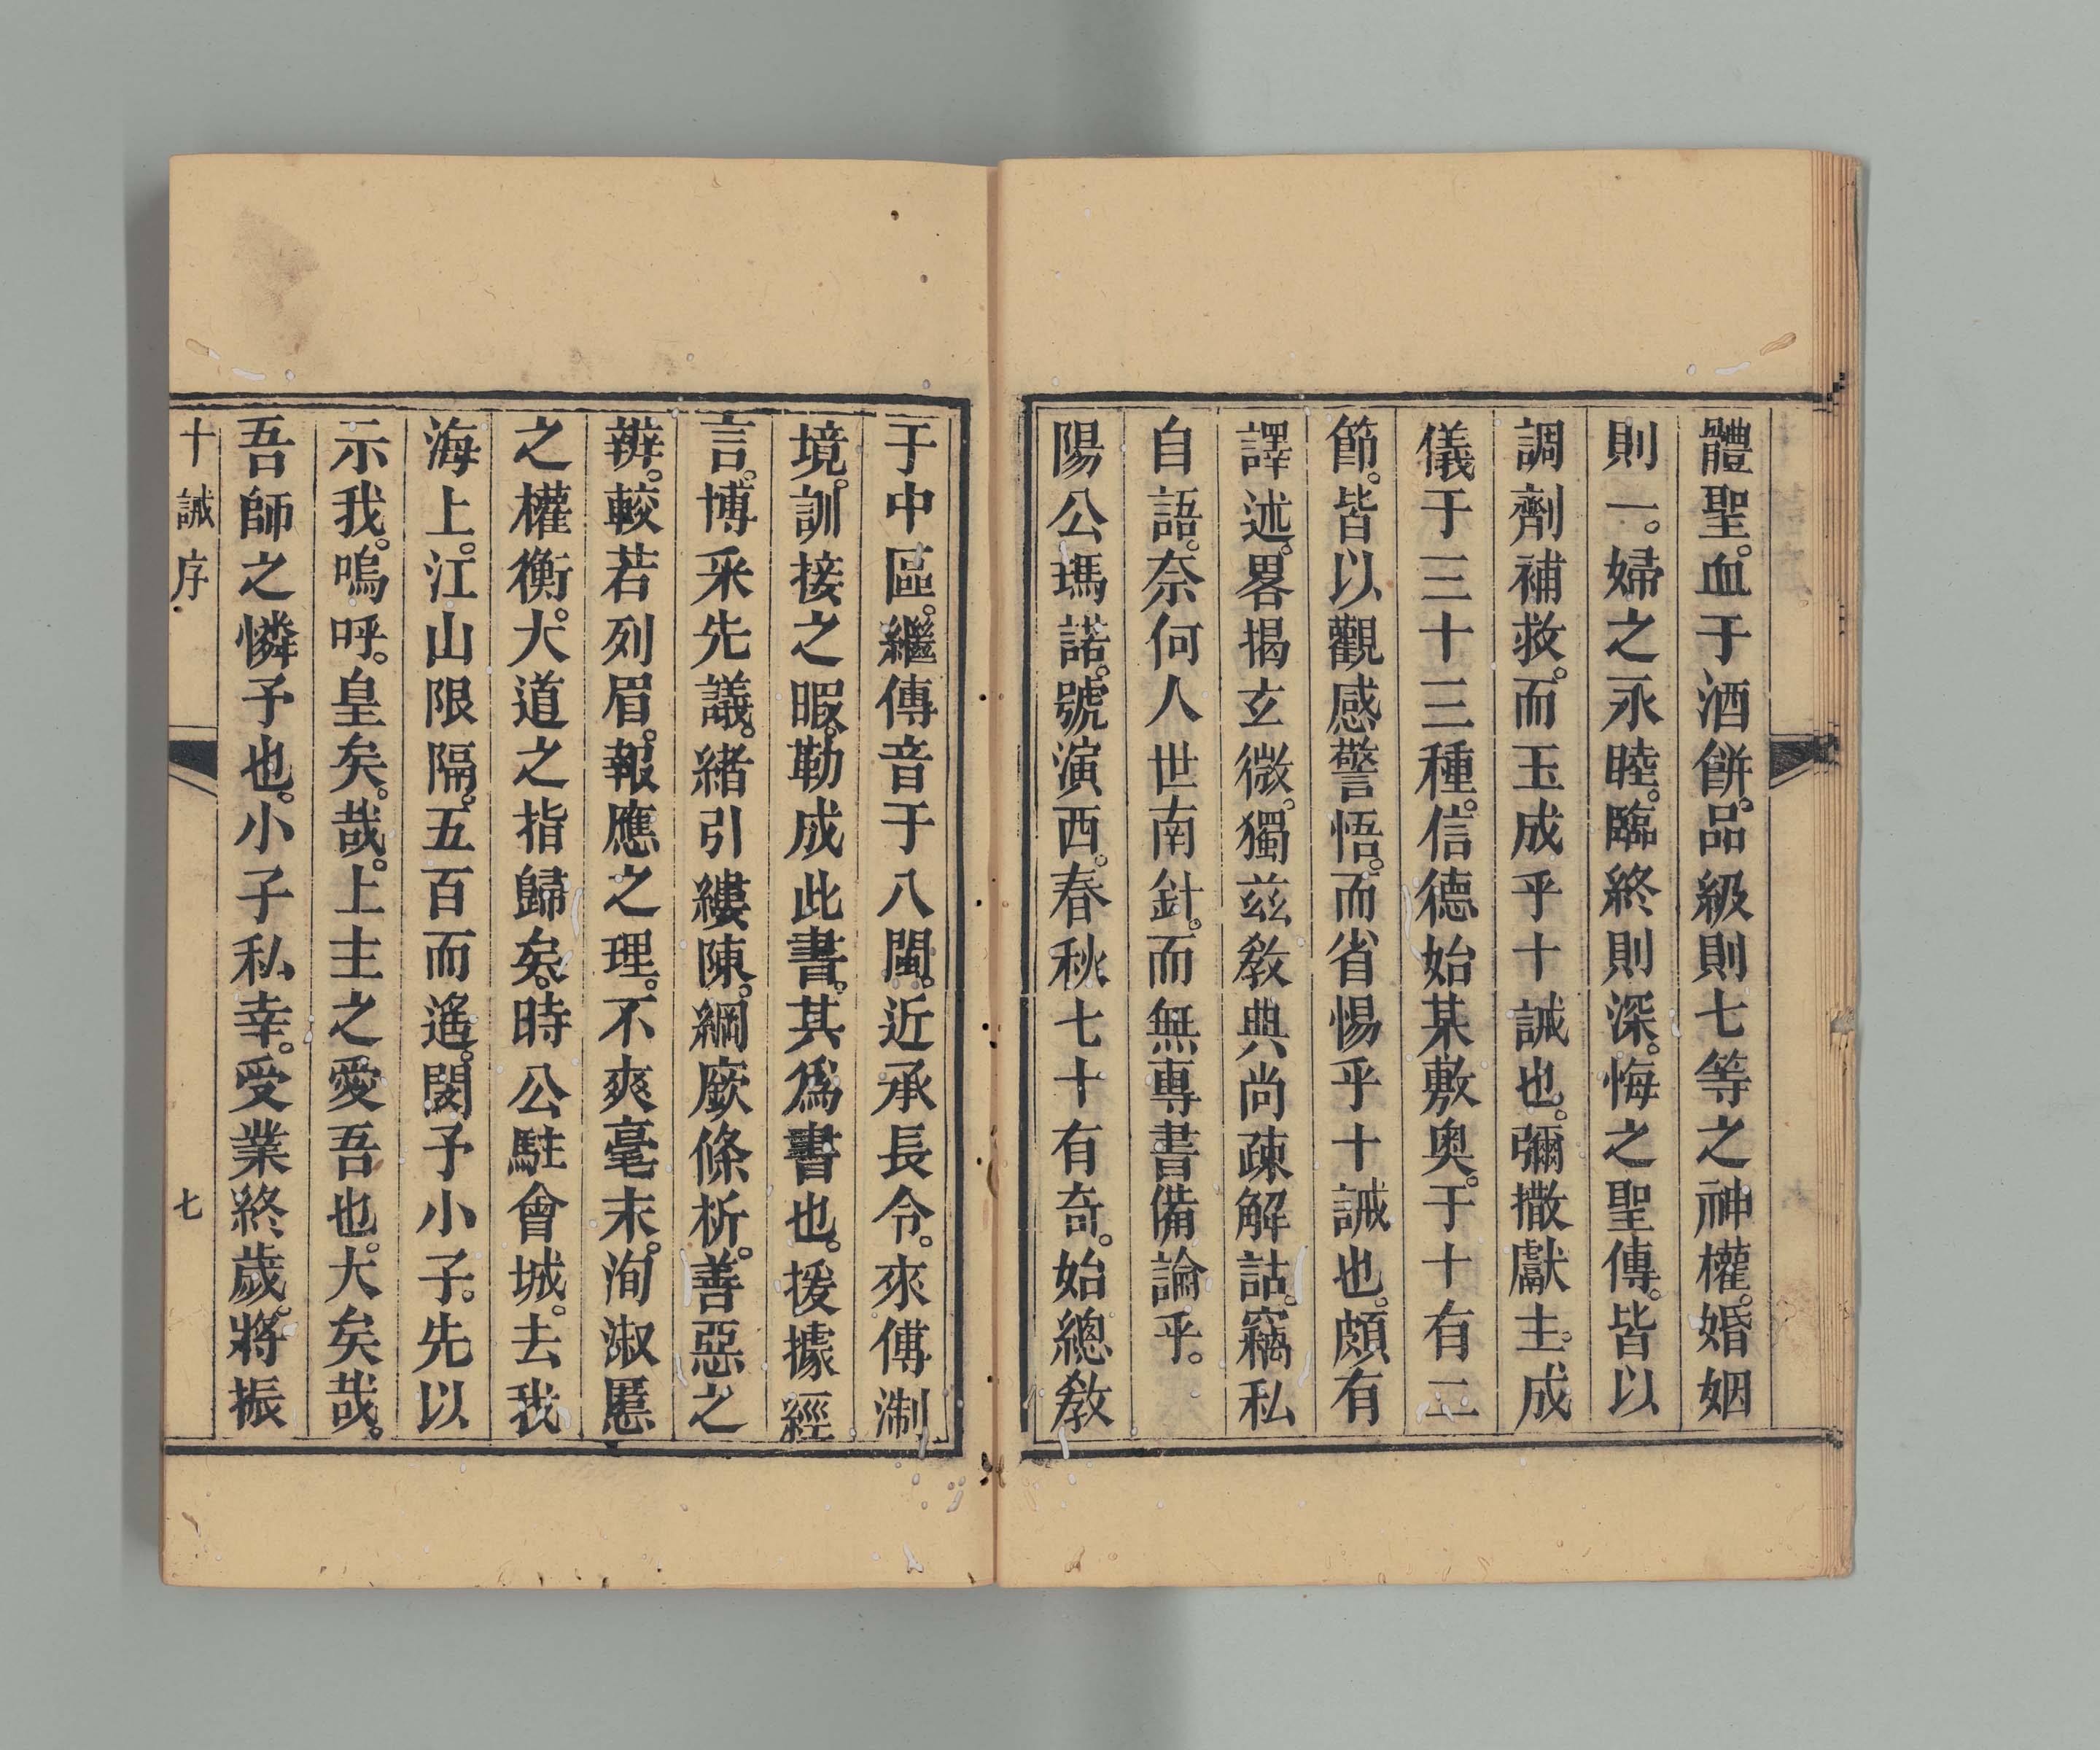 體聖。血于酒餅。品級則七等之神權。婚姻
則一。婦之永睦。臨終則深。悔之聖傳。皆以
調劑補救。而玉成乎十誡也。彌撒獻主。成
儀于三十三種。信德始某敷奧。于十有二
節。皆以觀感警悟。而省惕乎十誡也。頗有
譯述。畧揭玄微。獨玆敎典尚疎解詁。竊私
自語。奈何人世南針。而無專書備論乎。
陽公瑪諾。號演西。春秋七十有奇。始總敎
于中區。繼傳音于八閩。近承長令。來傳淛
境。訓接之暇。勒成此書。其爲書也。援據經
言。博釆先議。緒引縷陳。綱厥條析。善惡之
辨。較若列眉。報應之理。不爽毫末。洵淑慝
之權衡。大道之指歸矣。時公駐會城。去我
海上。江山限隔。五百而遙。閔予小子。先以
示我。嗚呼。皇矣。哉。上主之愛吾也。大矣哉。
吾師之憐予也。小子私幸。受業終歲。將振
十誡序 七